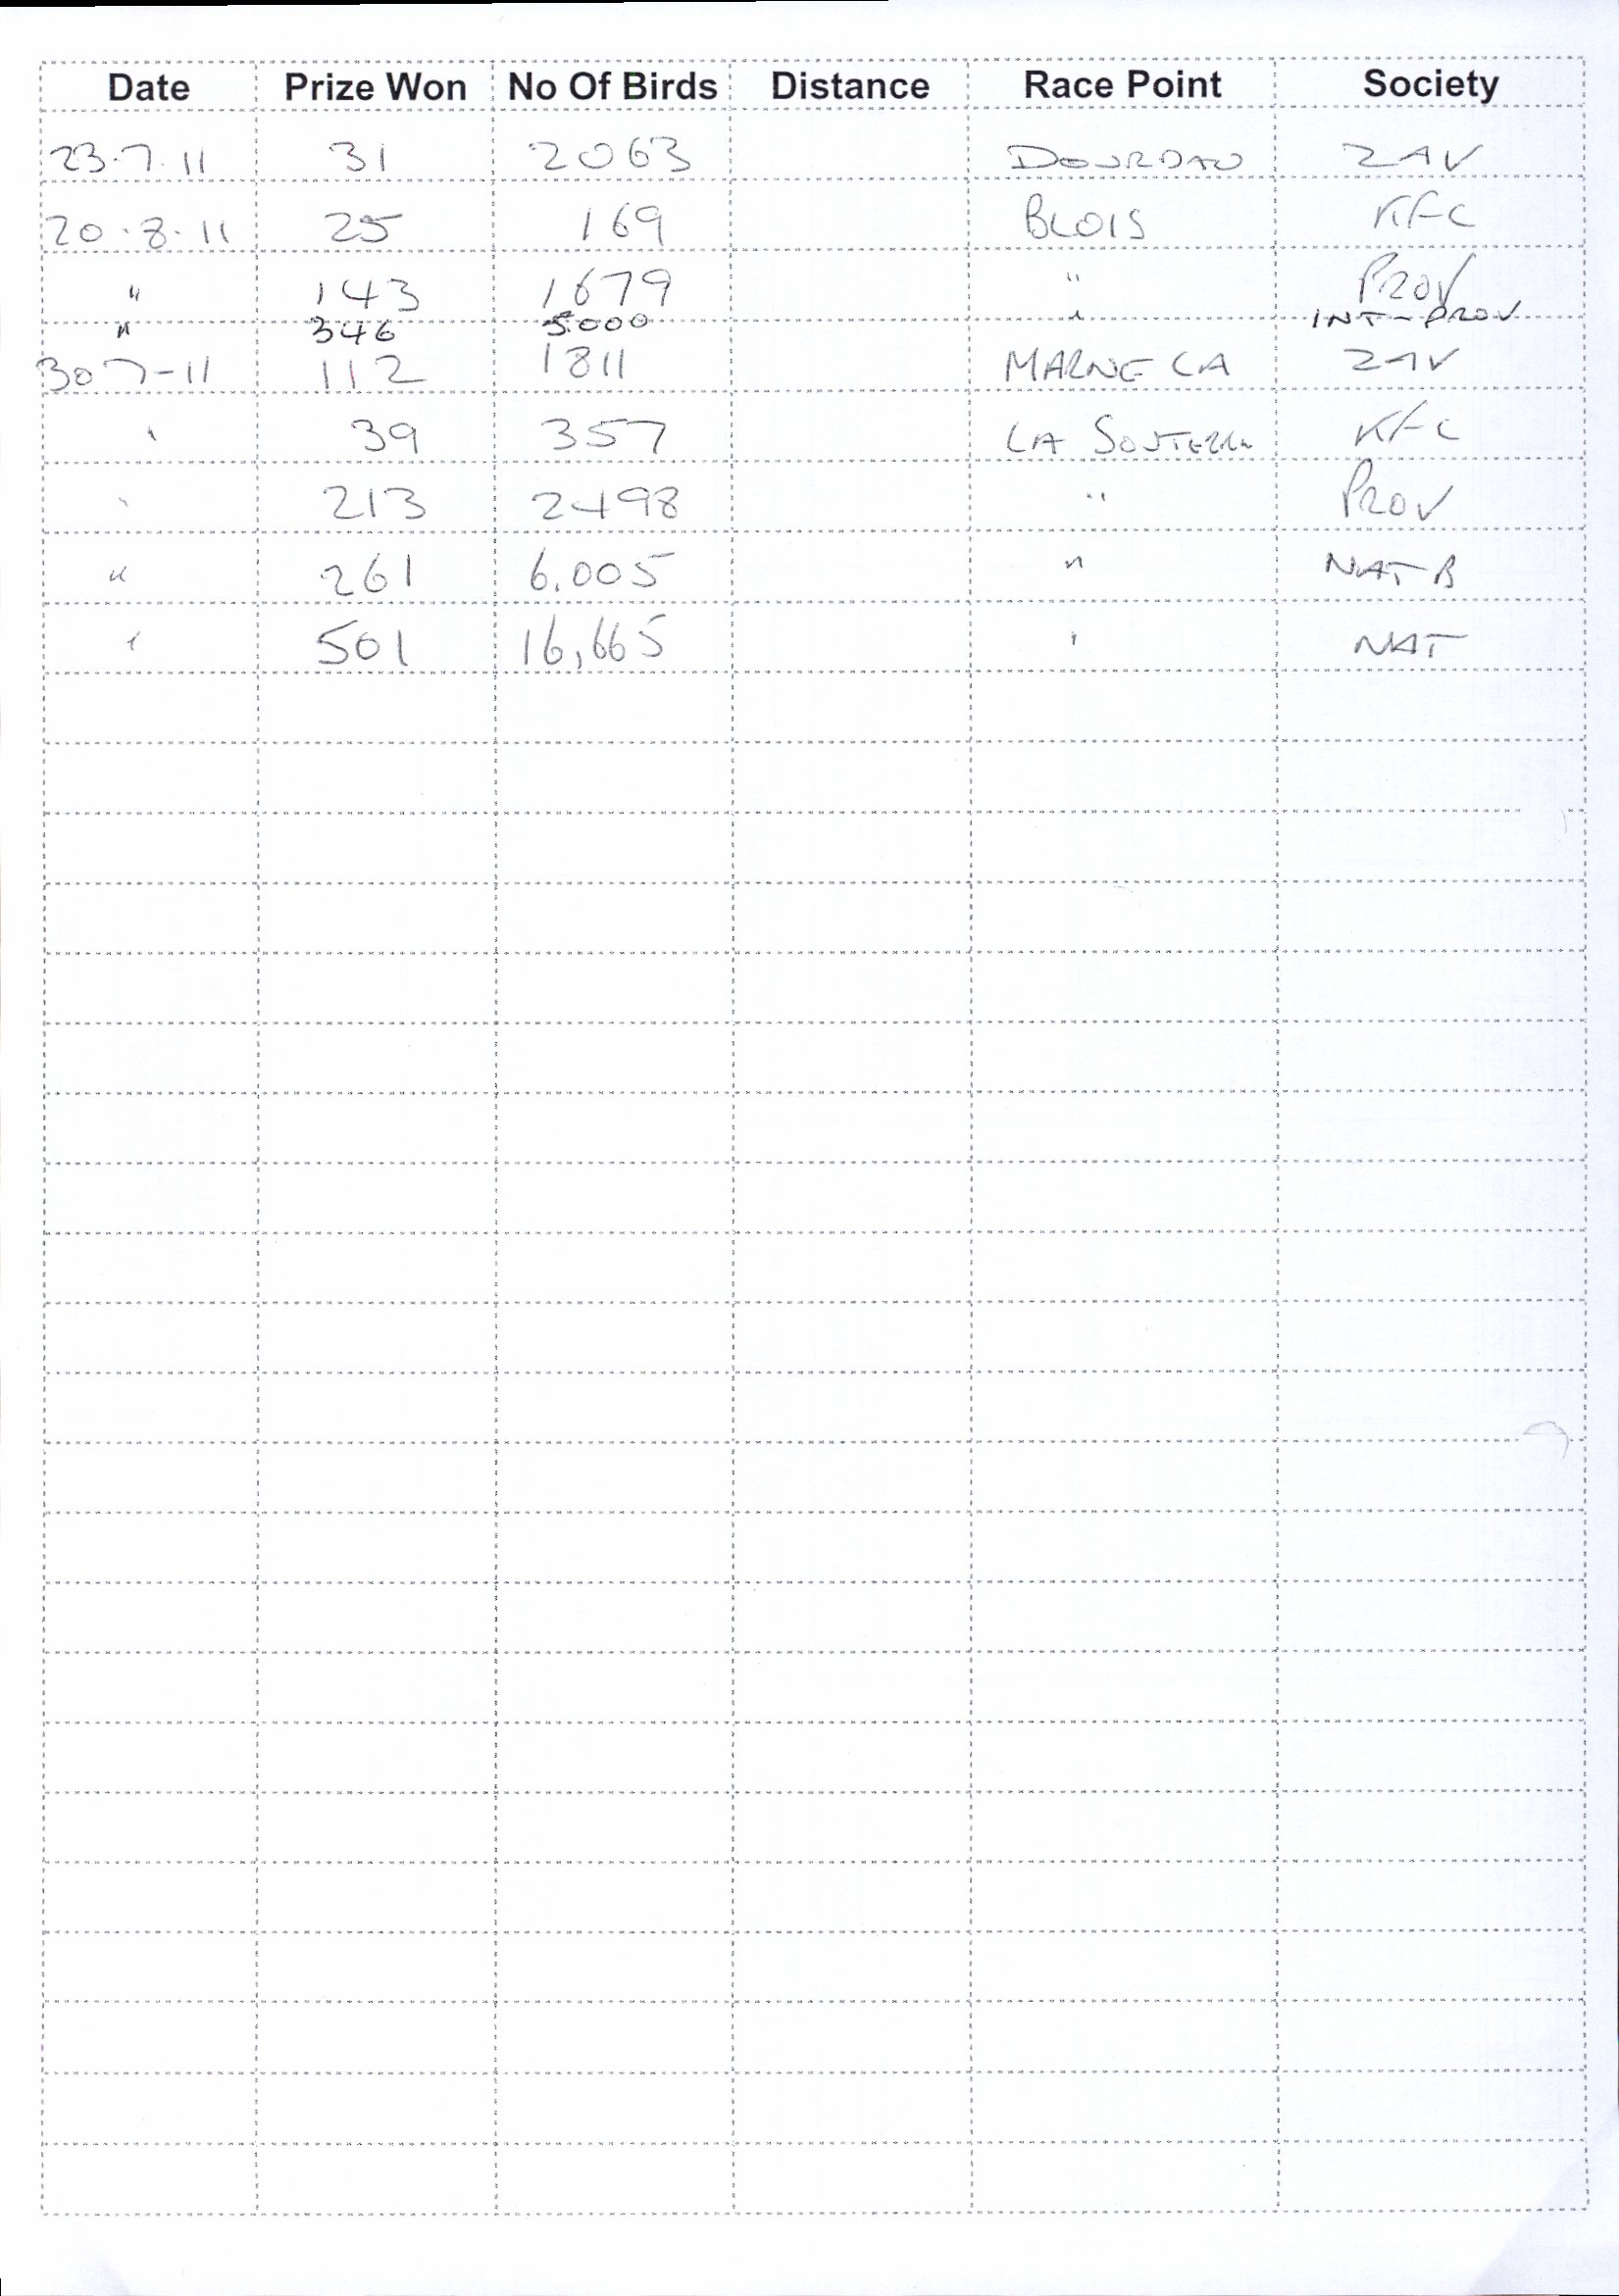 Date Prize Won No Of Birds Distance Race Point Society
23.7.11 31 2063 DOURDAN ZAV
20.8.11 25 169 BLOIS KFC
" 143 1679 " PROV
" 346 5.000 " INT-PROV
30 7-11 112 1811 MARNE LA ZAV
" 39 357 LA KFC
" 213 2498 " PROV
" 261 6.005 " NAT B
" 501 16,665 " NAT